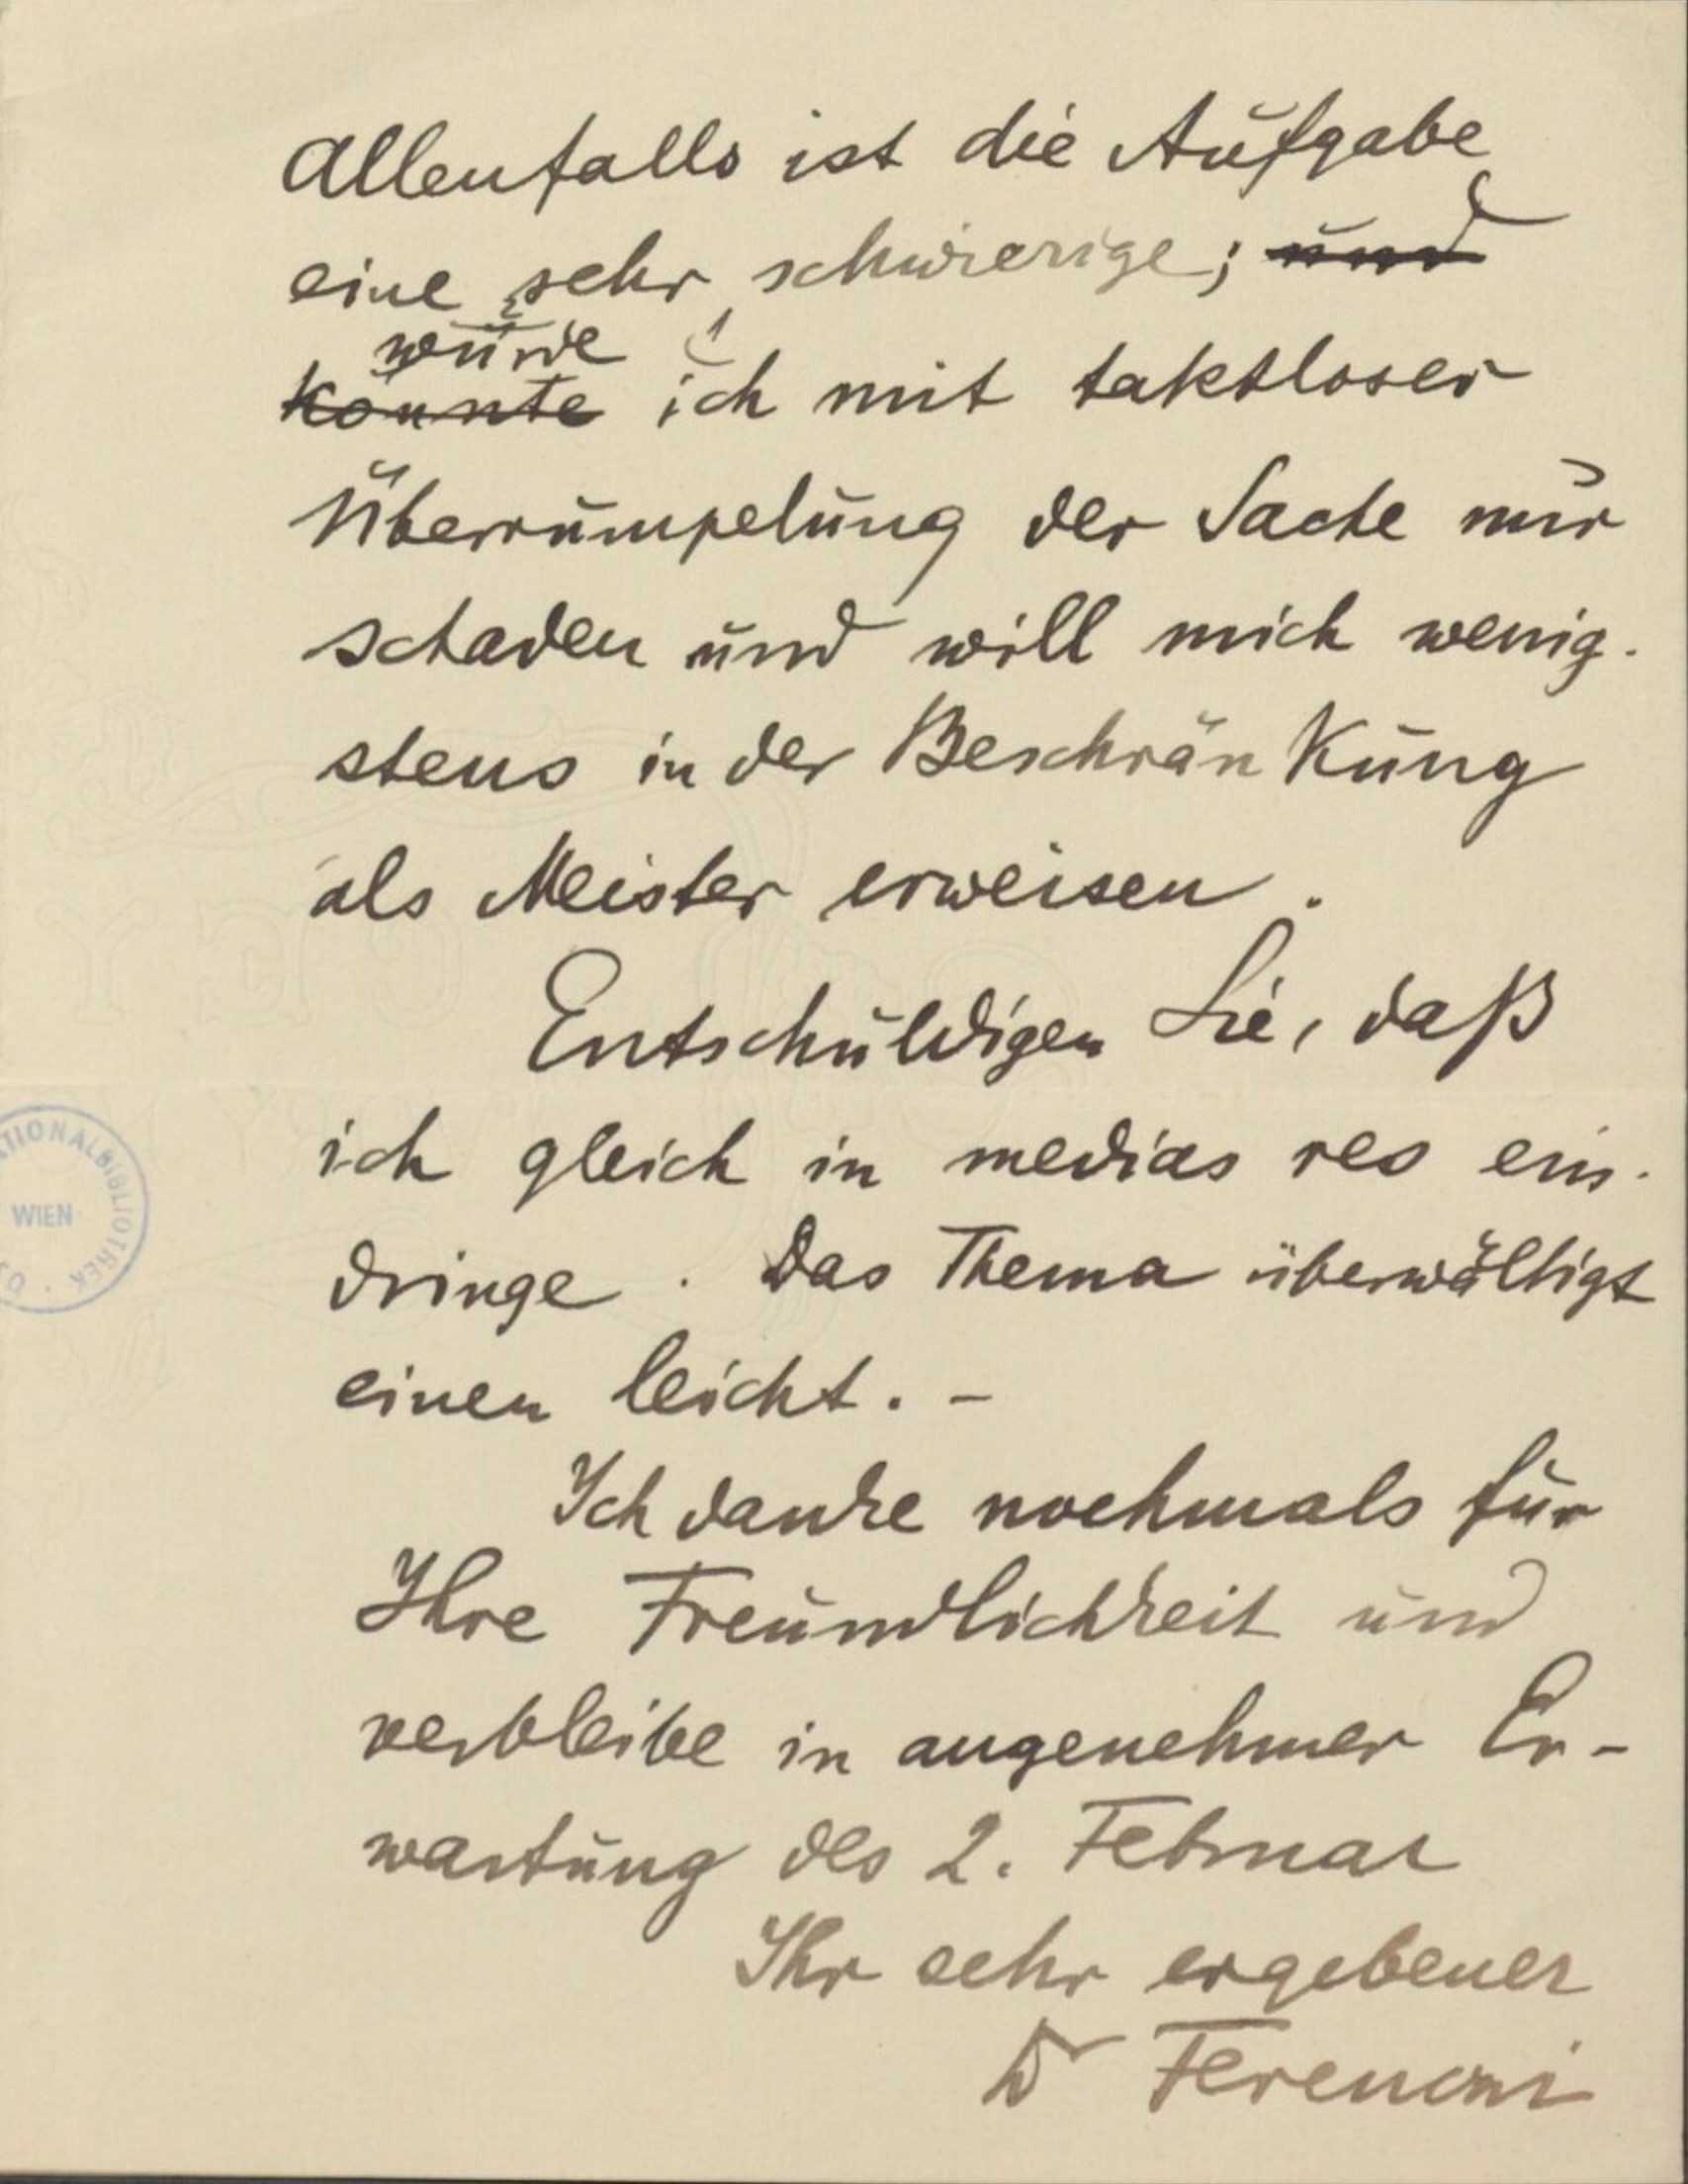 Allenfalls ist die Aufgabe
eine sehr schwierige; und
würde
könnte ich mit taktloser
Überrumpelung der Sache nur
schaden und will mich wenig-
stens in der Beschränkung
als Meister erweisen.
Entschuldigen Sie, daß
ich gleich in medias res ein-
dringe. Das Thema überwältigt
einen leicht. -
Ich danke nochmals für
Ihre Freundlichkeit und
verbleibe in angenehmer Er-
wartung des 2. Februar
Ihr sehr ergebener
Dr Ferenczi
TIONALBIBLIOTHEK
WIEN